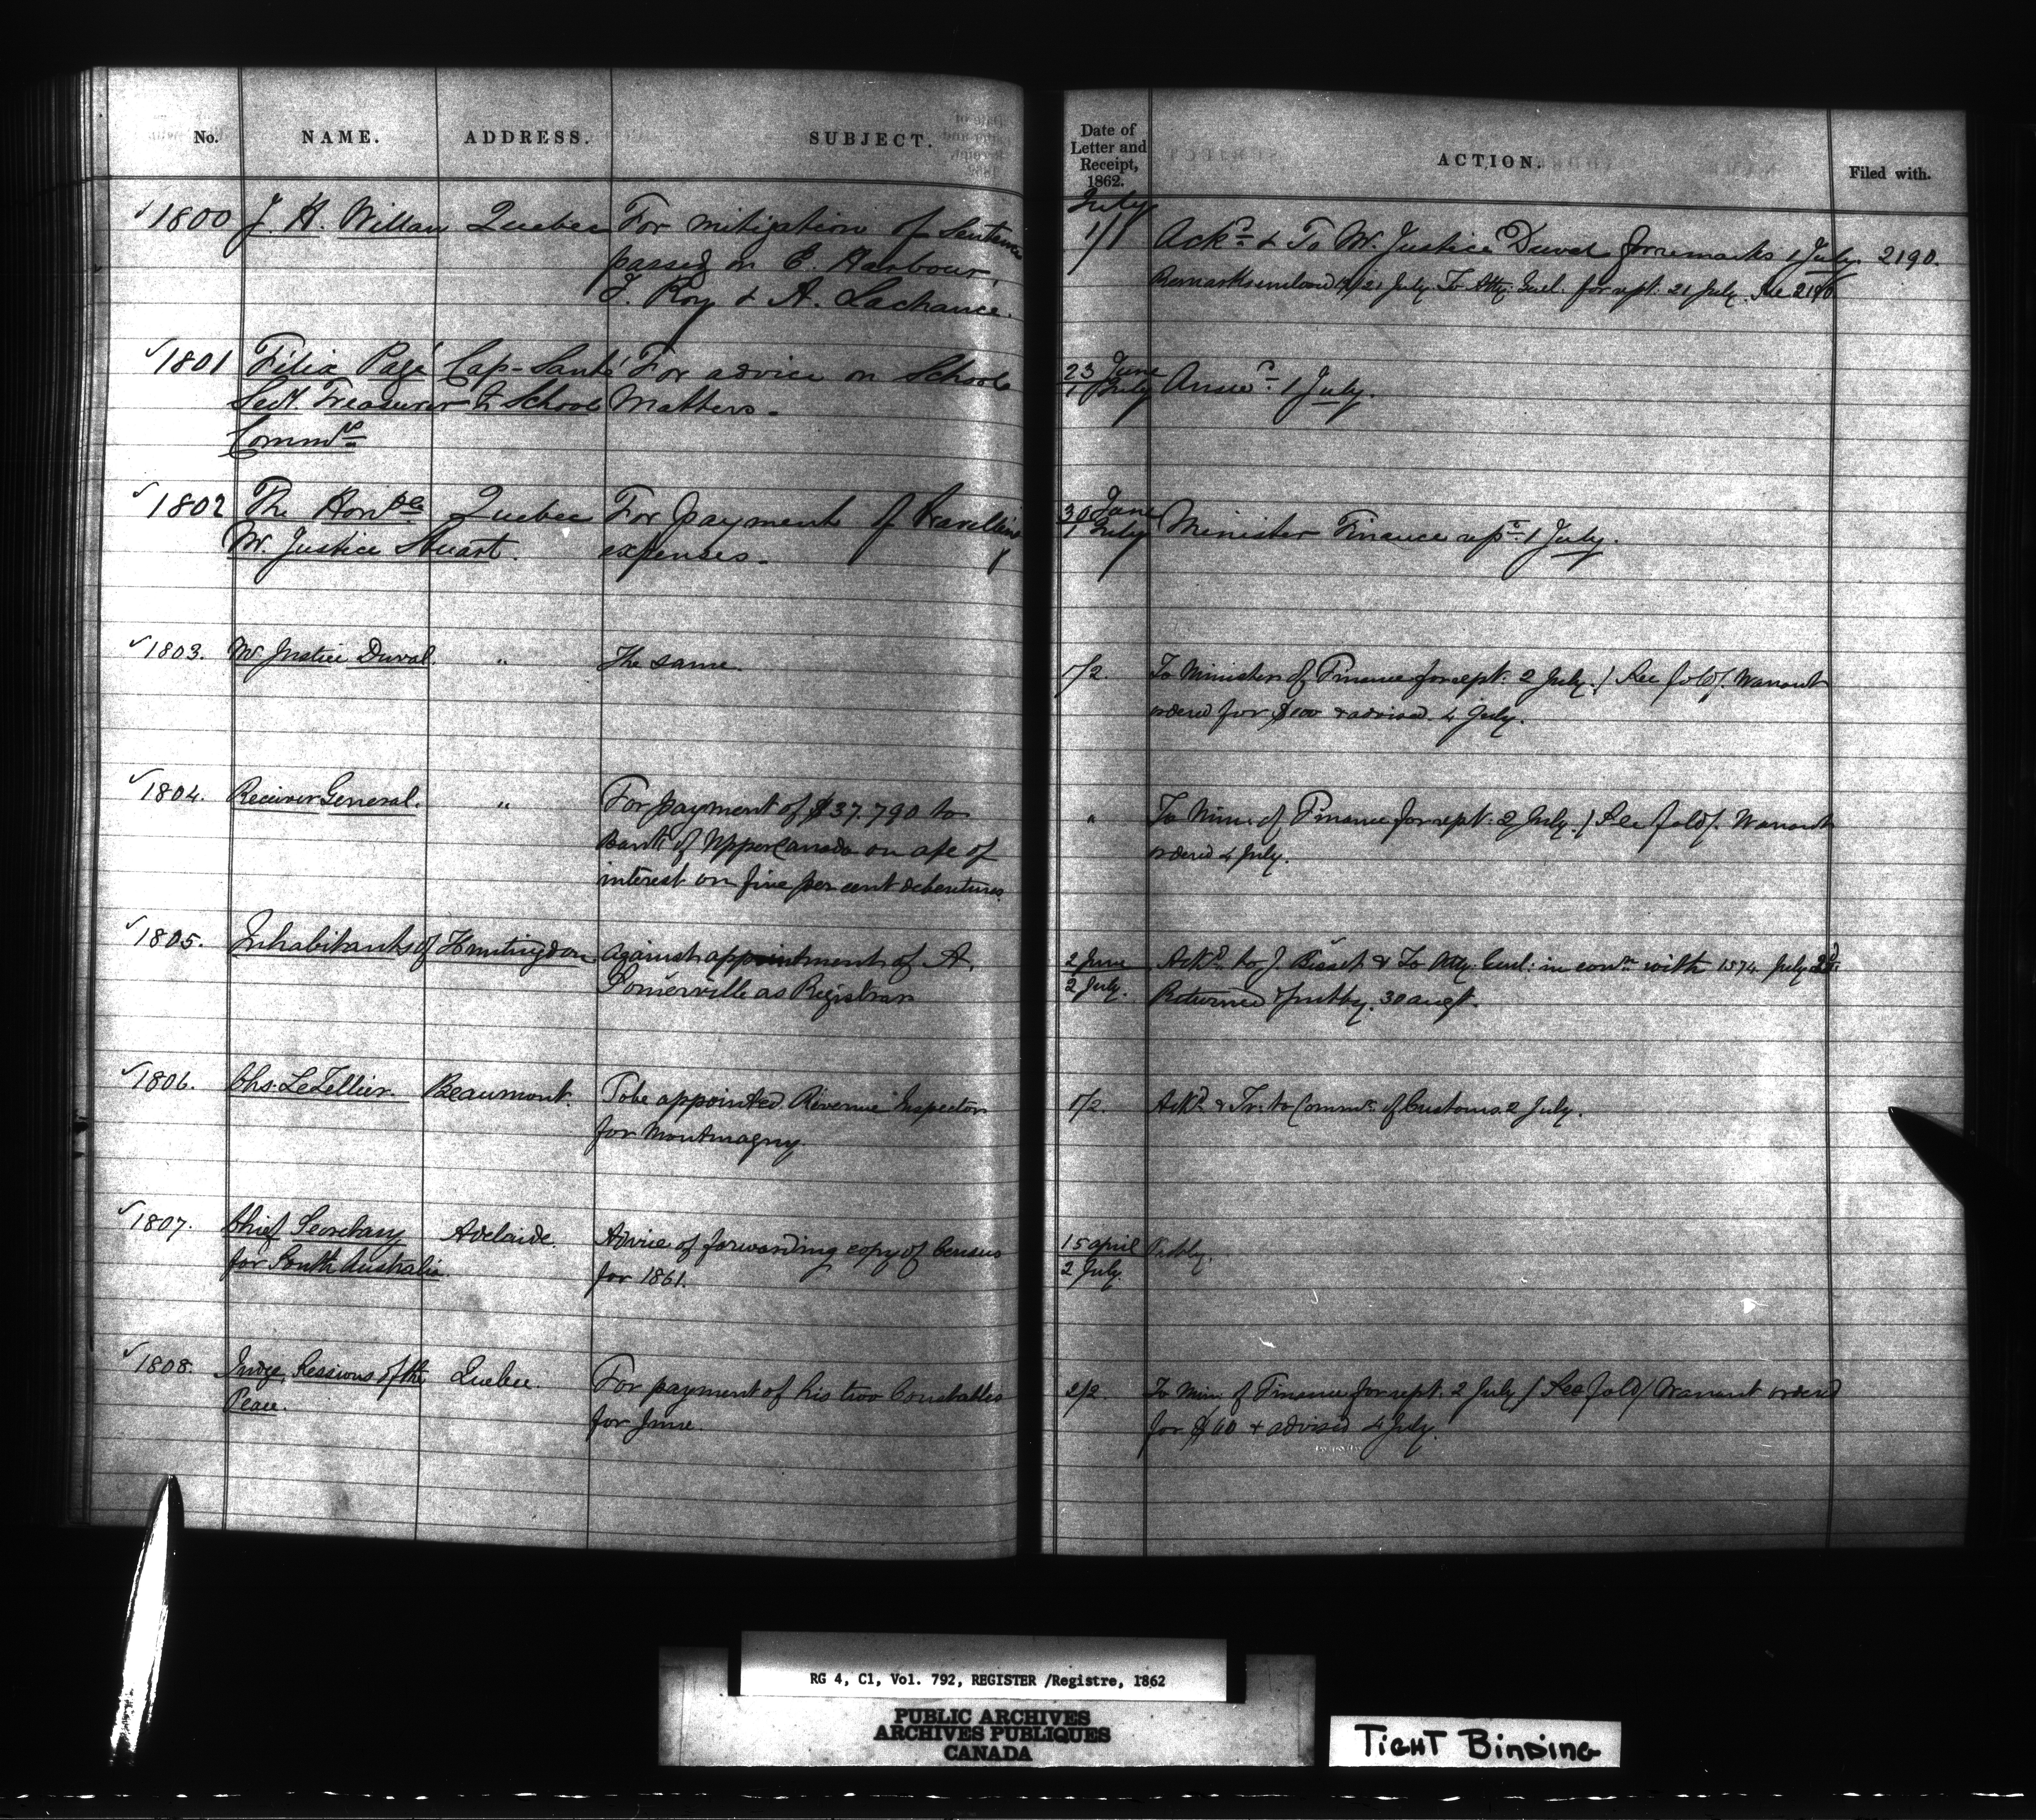 No. NAME. ADDRESS. SUBJECT. Date of Letter and Receipt, 1862. ACTION. Filed with.
July
1800 J. H. Willan Quebec For mitigation of Sentence 1/1 Ackd. & To Mr. Justice Duval for remarks 1 July. 2190.
passed on E. Harbour, 21 July To Atty. Genl. for rept. 21 July. See 2190
F. Roy & A. Lachance.
1801 Félix Pagé Cap-Santé For advice on School 23 June Answd. 1 July.
Secy. Treasurer to School Matters. 1 July
Commrs
1802 The Honble Quebec For payment of travelling 30 June Minister Finance 1 July.
Mr. Justice Stuart. expenses. 1 July
1803. Mr Justice Duval. " The same. 1/2. To Minister of Finance for rept. 2 July. / See fold /. Warrant
ordered for $100 & advised 4 July.
1804. Receiver General. " For payment of $37.790 to " To Minr. of Finance for rept. 2 July. / See fold /. Warrant
Bank of Upper Canada on a/c of ordered 4 July.
interest on five per cent debentures.
1805. Inhabitants of Huntingdon. Against appointment of A. 2 June Ackd. to J. Bisset & To Atty. Genl. in conn. with 1574 July 2d.
Somerville as Registrar 2 July. Returned & putby. 30 augt.
1806. Chs. LeTellier. Beaumont. To be appointed Revenue Inspector 1/2. Ackd. & Tr. to Commr. of Customs 2 July.
for Montmagny.
1807. Chief Secretary Adelaide. Advice of forwarding copy of Census 15 april Putby.
for South Australia. for 1861. 2 July.
1808. Judge, Sessions of the Quebec. For payment of his two Constables 2/2. To Min. of Finance for rept. 2 July / See fold / Warrant ordered
Peace. for June. for $60 & advised 4 July.
RG 4, C1, Vol. 792, REGISTER /Registre, 1862
PUBLIC ARCHIVES
ARCHIVES PUBLIQUES
CANADA
TIGHT BINDING